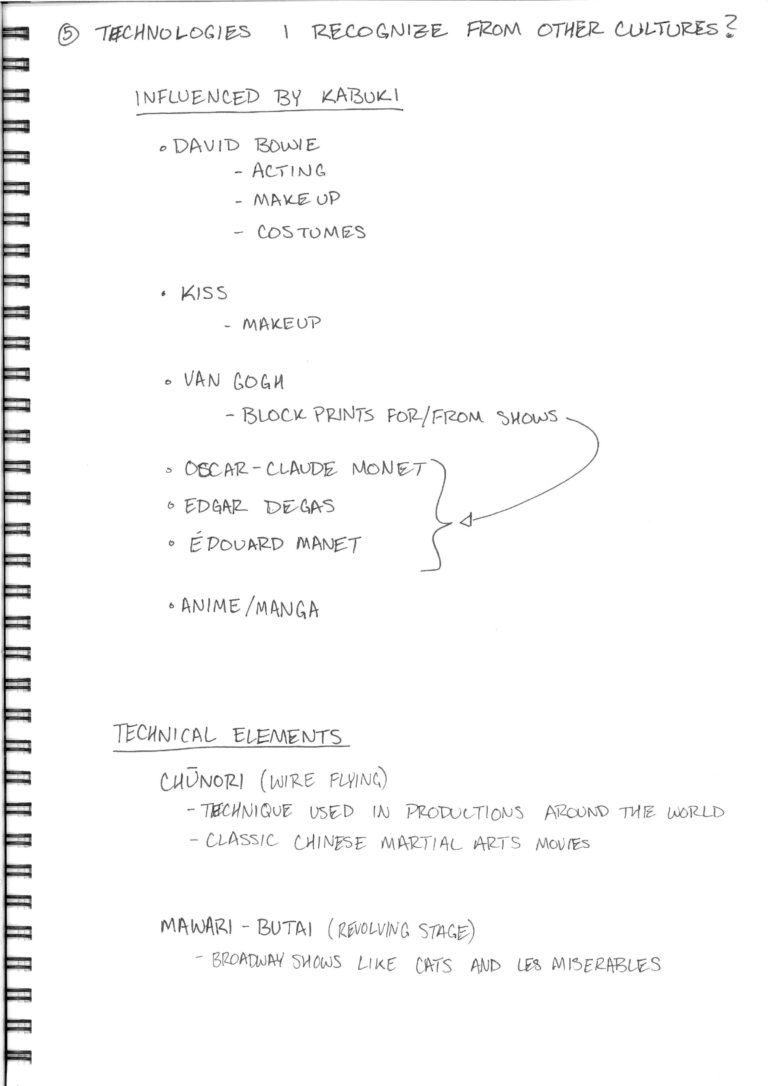 ⑤ TECHNOLOGIES I RECOGNIZE FROM OTHER CULTURES?
INFLUENCED BY KABUKI
• DAVID BOWIE
- ACTING
- MAKEUP
- COSTUMES
• KISS
- MAKEUP
• VAN GOGH
- BLOCK PRINTS FOR/FROM SHOWS
• OSCAR-CLAUDE MONET
• EDGAR DEGAS
• ÉDOUARD MANET
• ANIME/MANGA
TECHNICAL ELEMENTS
CHŪNORI (WIRE FLYING)
- TECHNIQUE USED IN PRODUCTIONS AROUND THE WORLD
- CLASSIC CHINESE MARTIAL ARTS MOVIES
MAWARI-BUTAI (REVOLVING STAGE)
- BROADWAY SHOWS LIKE CATS AND LES MISERABLES